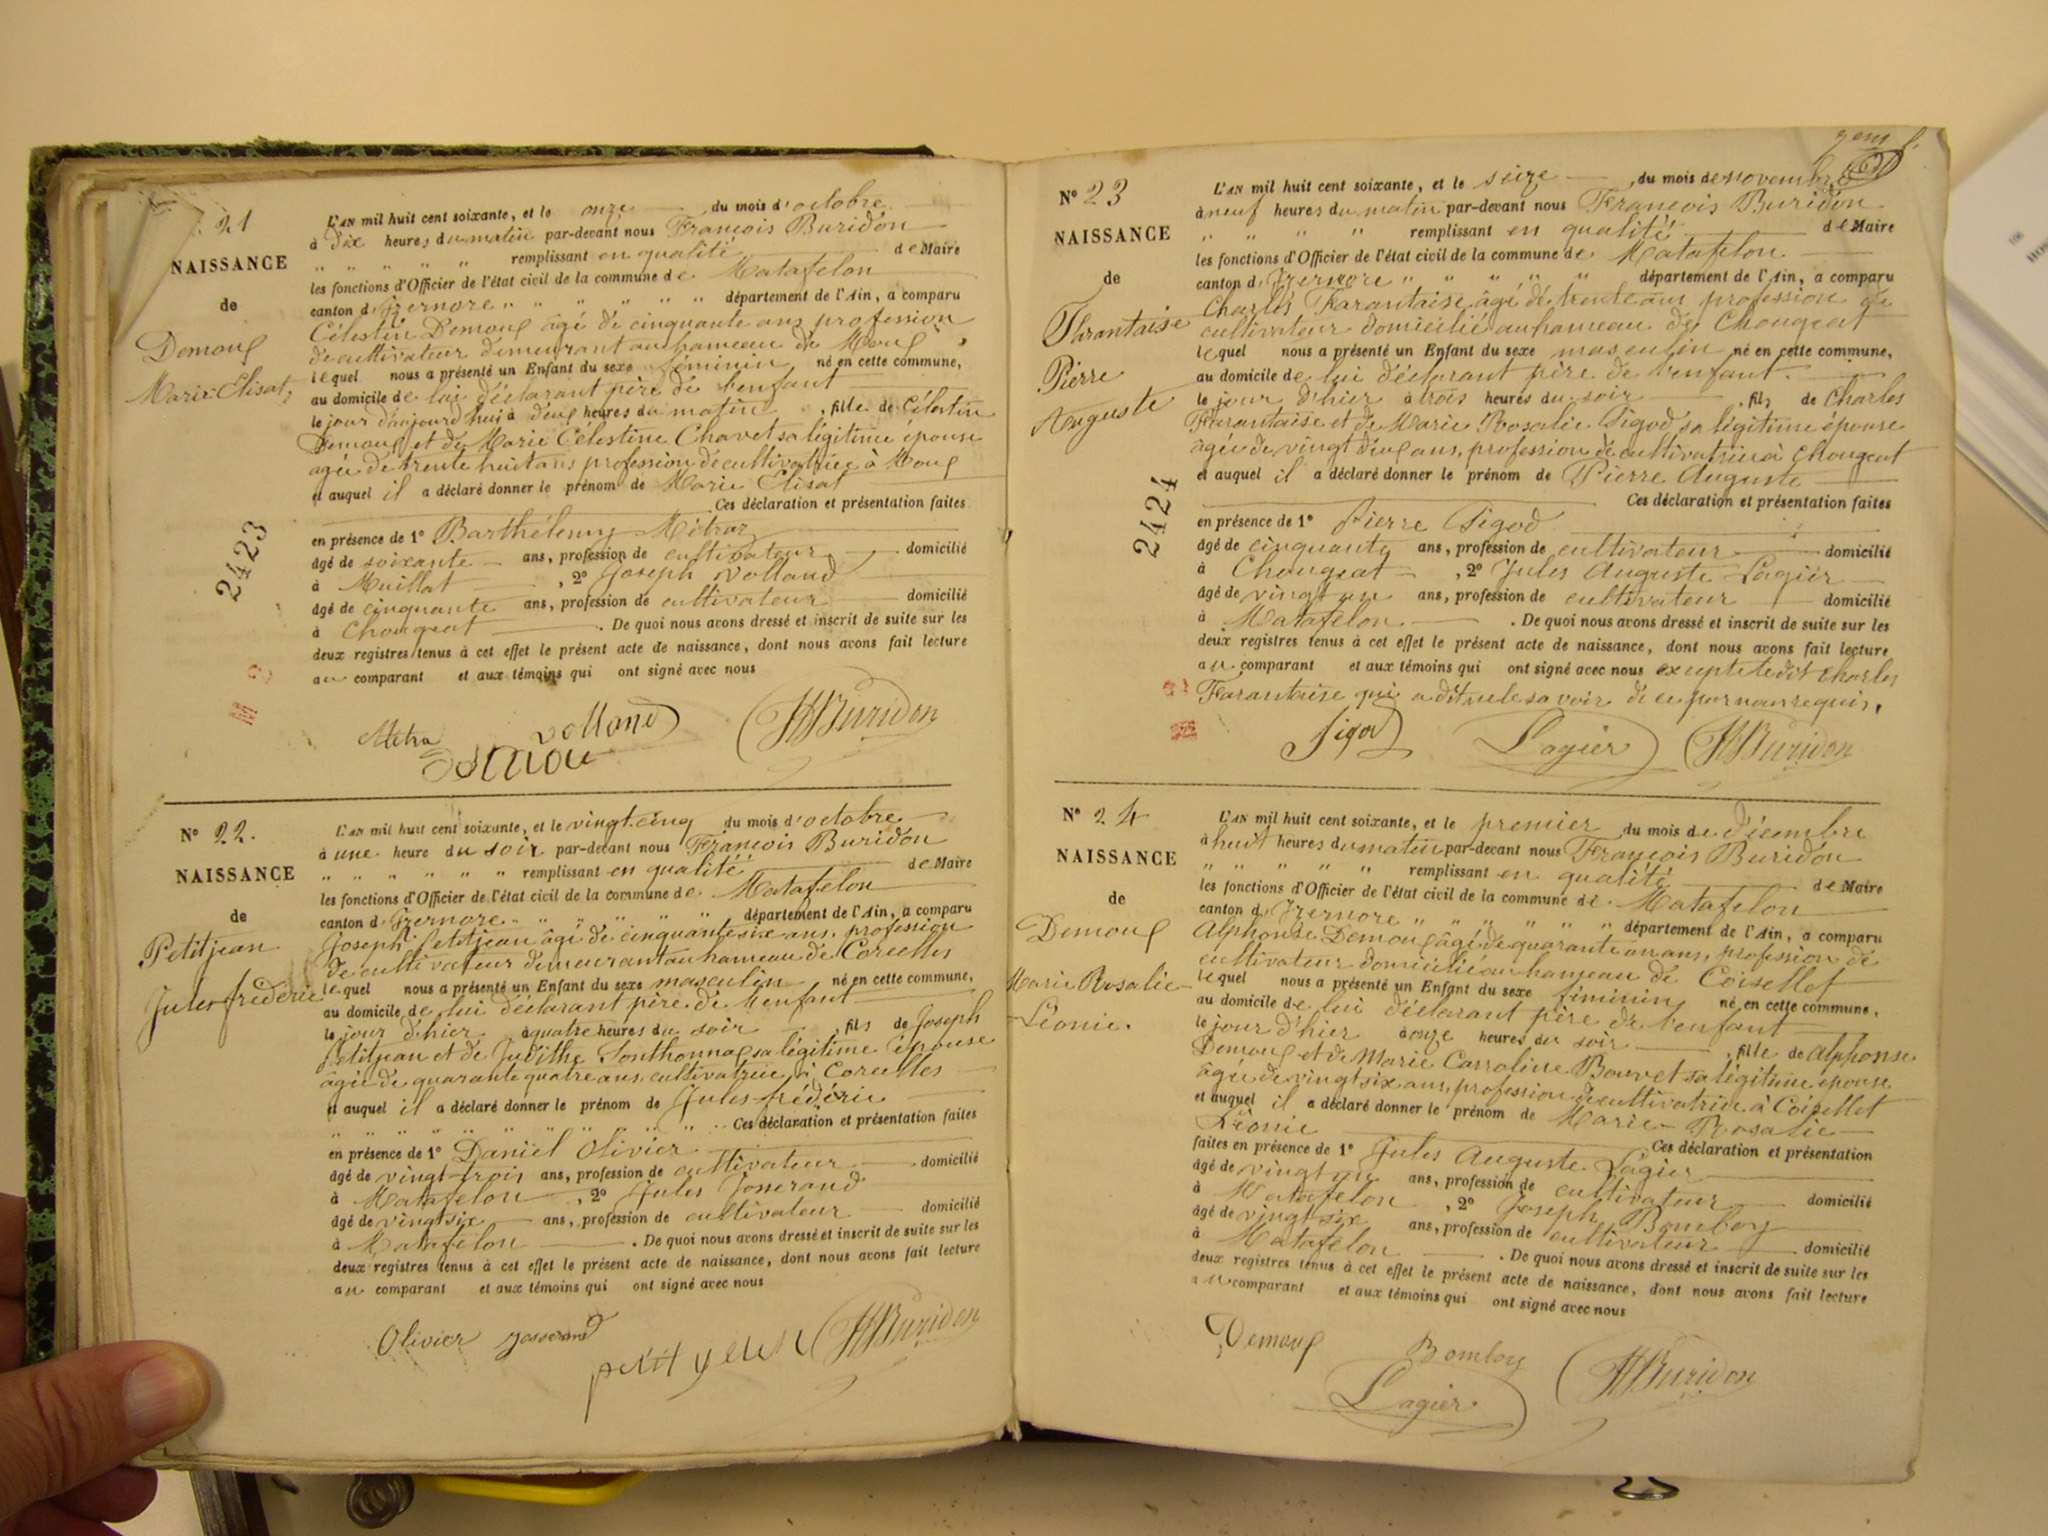 21
NAISSANCE
de
Demoux
Marie Elisat
2423
L'AN mil huit cent soixante, et le onze du mois d'octobre
à dix heures du matin par-devant nous François Buridon
" " " " " remplissant en qualité de Maire
les fonctions d'Officier de l'état civil de la commune de Matafelon
canton d'Izernore " " " " " " département de l'Ain, a comparu
Célestin Demoux âgé de cinquante ans profession
de cultivateur demeurant au hameau de Moux
lequel nous a présenté un Enfant du sexe féminin né en cette commune,
au domicile de lui déclarant père de l'enfant
le jour d'aujourd'hui à deux heures du matin, fille de Célestin
Demoux et de Marie Célestine Chavet sa légitime épouse
agée de trente huit ans profession de cultivatrice à Moux
et auquel il a déclaré donner le prénom de Marie Elisat
Ces déclaration et présentation faites
en présence de 1° Barthélemy Métraz
âgé de soixante ans, profession de cultivateur domicilié
à Maillat, 2° Joseph Volland
âgé de cinquante ans, profession de cultivateur domicilié
à Chougeat. De quoi nous avons dressé et inscrit de suite sur les
deux registres tenus à cet effet le présent acte de naissance, dont nous avons fait lecture
au comparant et aux témoins qui ont signé avec nous
Metra volland Buridon
N° 22.
NAISSANCE
de
Petitjean
Jules frédéric
L'AN mil huit cent soixante, et le vingt-cinq du mois d'octobre
à une heure du soir par-devant nous François Buridon
" " " " " " remplissant en qualité de Maire
les fonctions d'Officier de l'état civil de la commune de Matafelon
canton d'Izernore " " " " " département de l'Ain, a comparu
Joseph Petitjean âgé de cinquante six ans, profession
de cultivateur demeurant au hameau de Corcelles
lequel nous a présenté un Enfant du sexe masculin né en cette commune,
au domicile de lui déclarant père de l'enfant
le jour d'hier à quatre heures du soir, fils de Joseph
Petitjean et de Judithe Sonthonnax sa légitime épouse
âgée de quarante quatre ans, cultivatrice à Corcelles
et auquel il a déclaré donner le prénom de Jules frédéric
Ces déclaration et présentation faites
en présence de 1° Daniel Olivier
âgé de vingt-trois ans, profession de cultivateur domicilié
à Matafelon, 2° Jules Josserand
âgé de vingt six ans, profession de cultivateur domicilié
à Matafelon. De quoi nous avons dressé et inscrit de suite sur les
deux registres tenus à cet effet le présent acte de naissance, dont nous avons fait lecture
au comparant et aux témoins qui ont signé avec nous
Olivier Josserand petit jean Buridon
N° 23
NAISSANCE
de
Tarantaise
Pierre
Auguste
2424
L'AN mil huit cent soixante, et le seize du mois de novembre
à neuf heures du matin par-devant nous François Buridon
" " " " remplissant en qualité de Maire
les fonctions d'Officier de l'état civil de la commune de Matafelon
canton d'Izernore " " " " " département de l'Ain, a comparu
Charles Tarantaise âgé de trente ans profession de
cultivateur domicilié au hameau de Chougeat
lequel nous a présenté un Enfant du sexe masculin né en cette commune,
au domicile de lui déclarant père de l'enfant.
le jour d'hier à trois heures du soir, fils de Charles
Tarantaise et de Marie Rosalie Sigod sa légitime épouse
âgée de vingt deux ans, profession de cultivatrice à Chougeat
et auquel il a déclaré donner le prénom de Pierre Auguste
Ces déclaration et présentation faites
en présence de 1° Pierre Sigod
âgé de cinquante ans, profession de cultivateur domicilié
à Chougeat, 2° Jules Auguste Lagier
âgé de vingt un ans, profession de cultivateur domicilié
à Matafelon. De quoi nous avons dressé et inscrit de suite sur les
deux registres tenus à cet effet le présent acte de naissance, dont nous avons fait lecture
au comparant et aux témoins qui ont signé avec nous excepté ledit Charles
Tarantaise qui a dit ne le savoir de ce par nous requis.
Sigod Lagier Buridon
N° 24
NAISSANCE
de
Demoux
Marie Rosalie
Léonie.
L'AN mil huit cent soixante, et le premier du mois de décembre
à huit heures du matin par-devant nous François Buridon
" " " " " remplissant en qualité de Maire
les fonctions d'Officier de l'état civil de la commune de Matafelon
canton d'Izernore " " " " " " département de l'Ain, a comparu
Alphonse Demoux âgé de quarante un ans, profession de
cultivateur domicilié au hameau de Coisellet
lequel nous a présenté un Enfant du sexe féminin né en cette commune,
au domicile de lui déclarant père de l'enfant
le jour d'hier à onze heures du soir, fille de Alphonse
Demoux et de Marie Carroline Bouvet sa légitime épouse
âgée de vingt six ans, profession de cultivatrice à Coisellet
et auquel il a déclaré donner le prénom de Marie Rosalie
Léonie Ces déclaration et présentation
faites en présence de 1° Jules Auguste Lagier
âgé de vingt un ans, profession de cultivateur domicilié
à Matafelon, 2° Joseph Bomboy
âgé de vingt six ans, profession de cultivateur domicilié
à Matafelon. De quoi nous avons dressé et inscrit de suite sur les
deux registres tenus à cet effet le présent acte de naissance, dont nous avons fait lecture
au comparant et aux témoins qui ont signé avec nous
Demoux Bomboy Buridon
Lagier